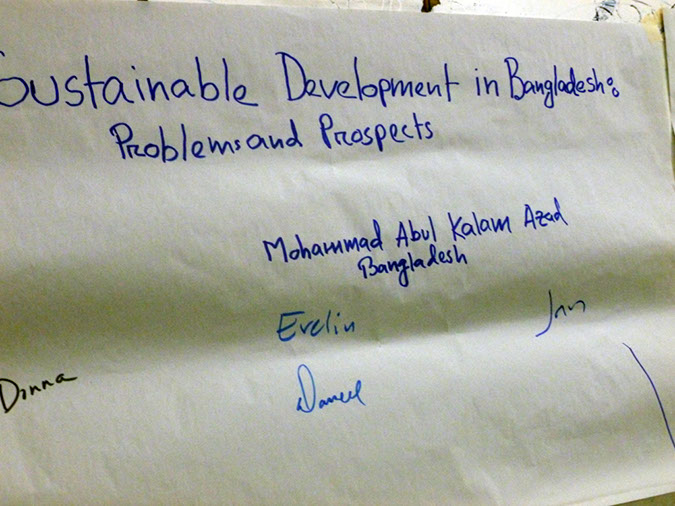 Sustainable Development in Bangladesh:
Problems and Prospects
Mohammad Abul Kalam Azad
Bangladesh
Evelin
Donna